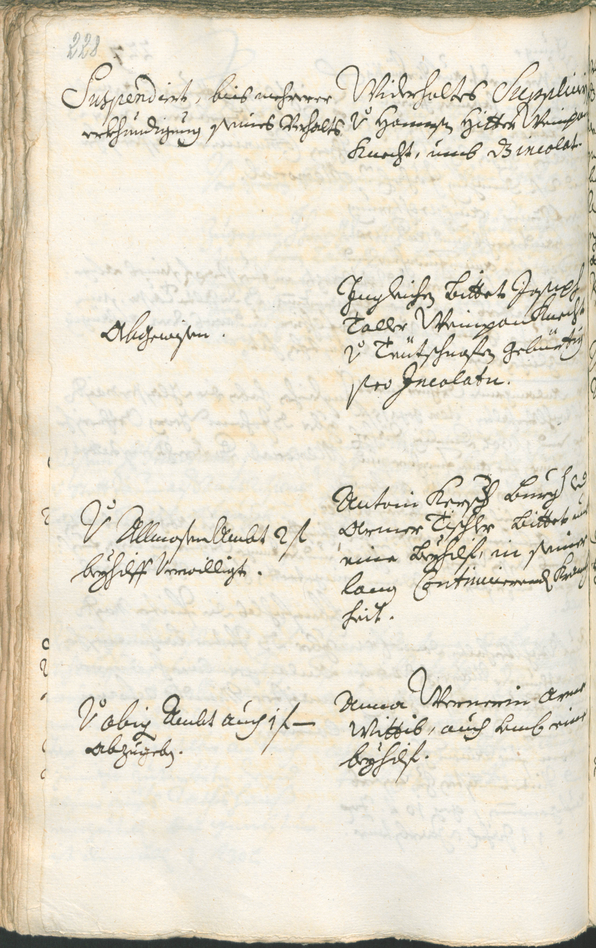 228
Suspendirt, bis mehrerer
erkhundigung seines Verhalts
Widerholtes Suppliciren
V Hannsen Hitter Weinpan
Knecht, umb D Incolat.
Abgewisen.
Ingleichen bittet Joseph
Taller Weinpan Knecht
V Teutschnofen gebürtig
pro Incolatu.
V Allmosen Ambt 2 f
beyhilff Verwilligt.
Antoni Kersch Burger
Armer Tischler bittet umb
eine Beyhilf, in seiner
lang Continuierend Kranck
heit.
V obig Ambt auch 1 f
abzugeben.
Anna Wernerin Arme
Wittib, auch umb eine
beyhilf.